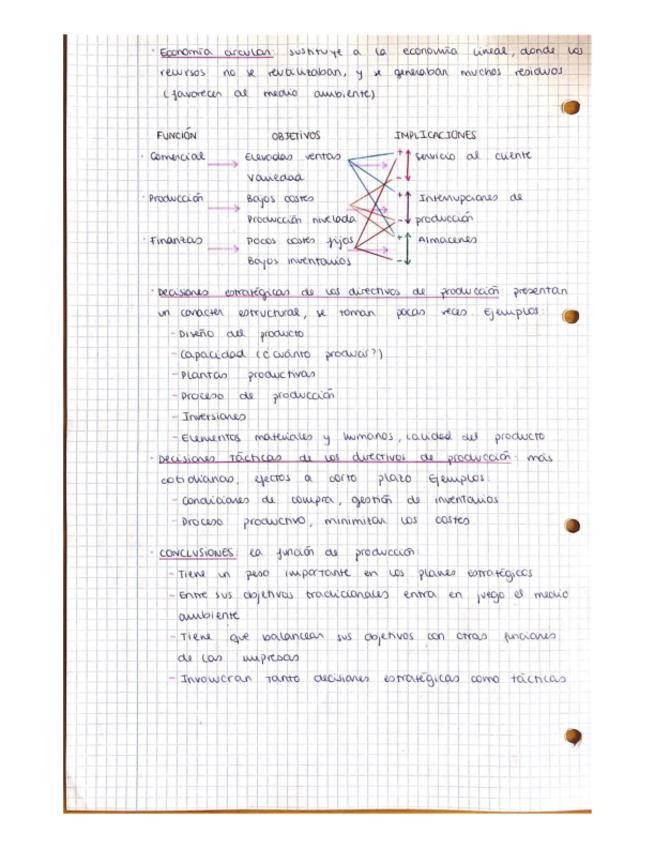 · Economía circular: sustituye a la economía lineal, donde los
recursos no se revalutaban, y se generaban muchos residuos
(favorecen al medio ambiente)
FUNCIÓN OBJETIVOS IMPLICACIONES
· Comercial → Elevadas ventas + Servicio al cliente
Variedad -
· Producción → Bajos costes + Interrupciones de
Producción nivelada - producción
· Finanzas → Pocos costes fijos + Almacenes
Bajos inventarios -
· Decisiones estratégicas de los directivos de producción presentan
un carácter estructural, se toman pocas veces. Ejemplos:
- Diseño del producto
- Capacidad (¿cuánto producir?)
- Plantas productivas
- Proceso de producción
- Inversiones
- Elementos materiales y humanos, calidad del producto
· Decisiones tácticas de los directivos de producción: más
cotidianas, efectos a corto plazo. Ejemplos:
- Condiciones de compra, gestión de inventarios
- Proceso productivo, minimizan los costes
· CONCLUSIONES: la función de producción
- Tiene un peso importante en los planes estratégicos
- Entre sus objetivos tradicionales entra en juego el medio
ambiente
- Tiene que balancear sus objetivos con otras funciones
de las empresas
- Involucran tanto decisiones estratégicas como tácticas